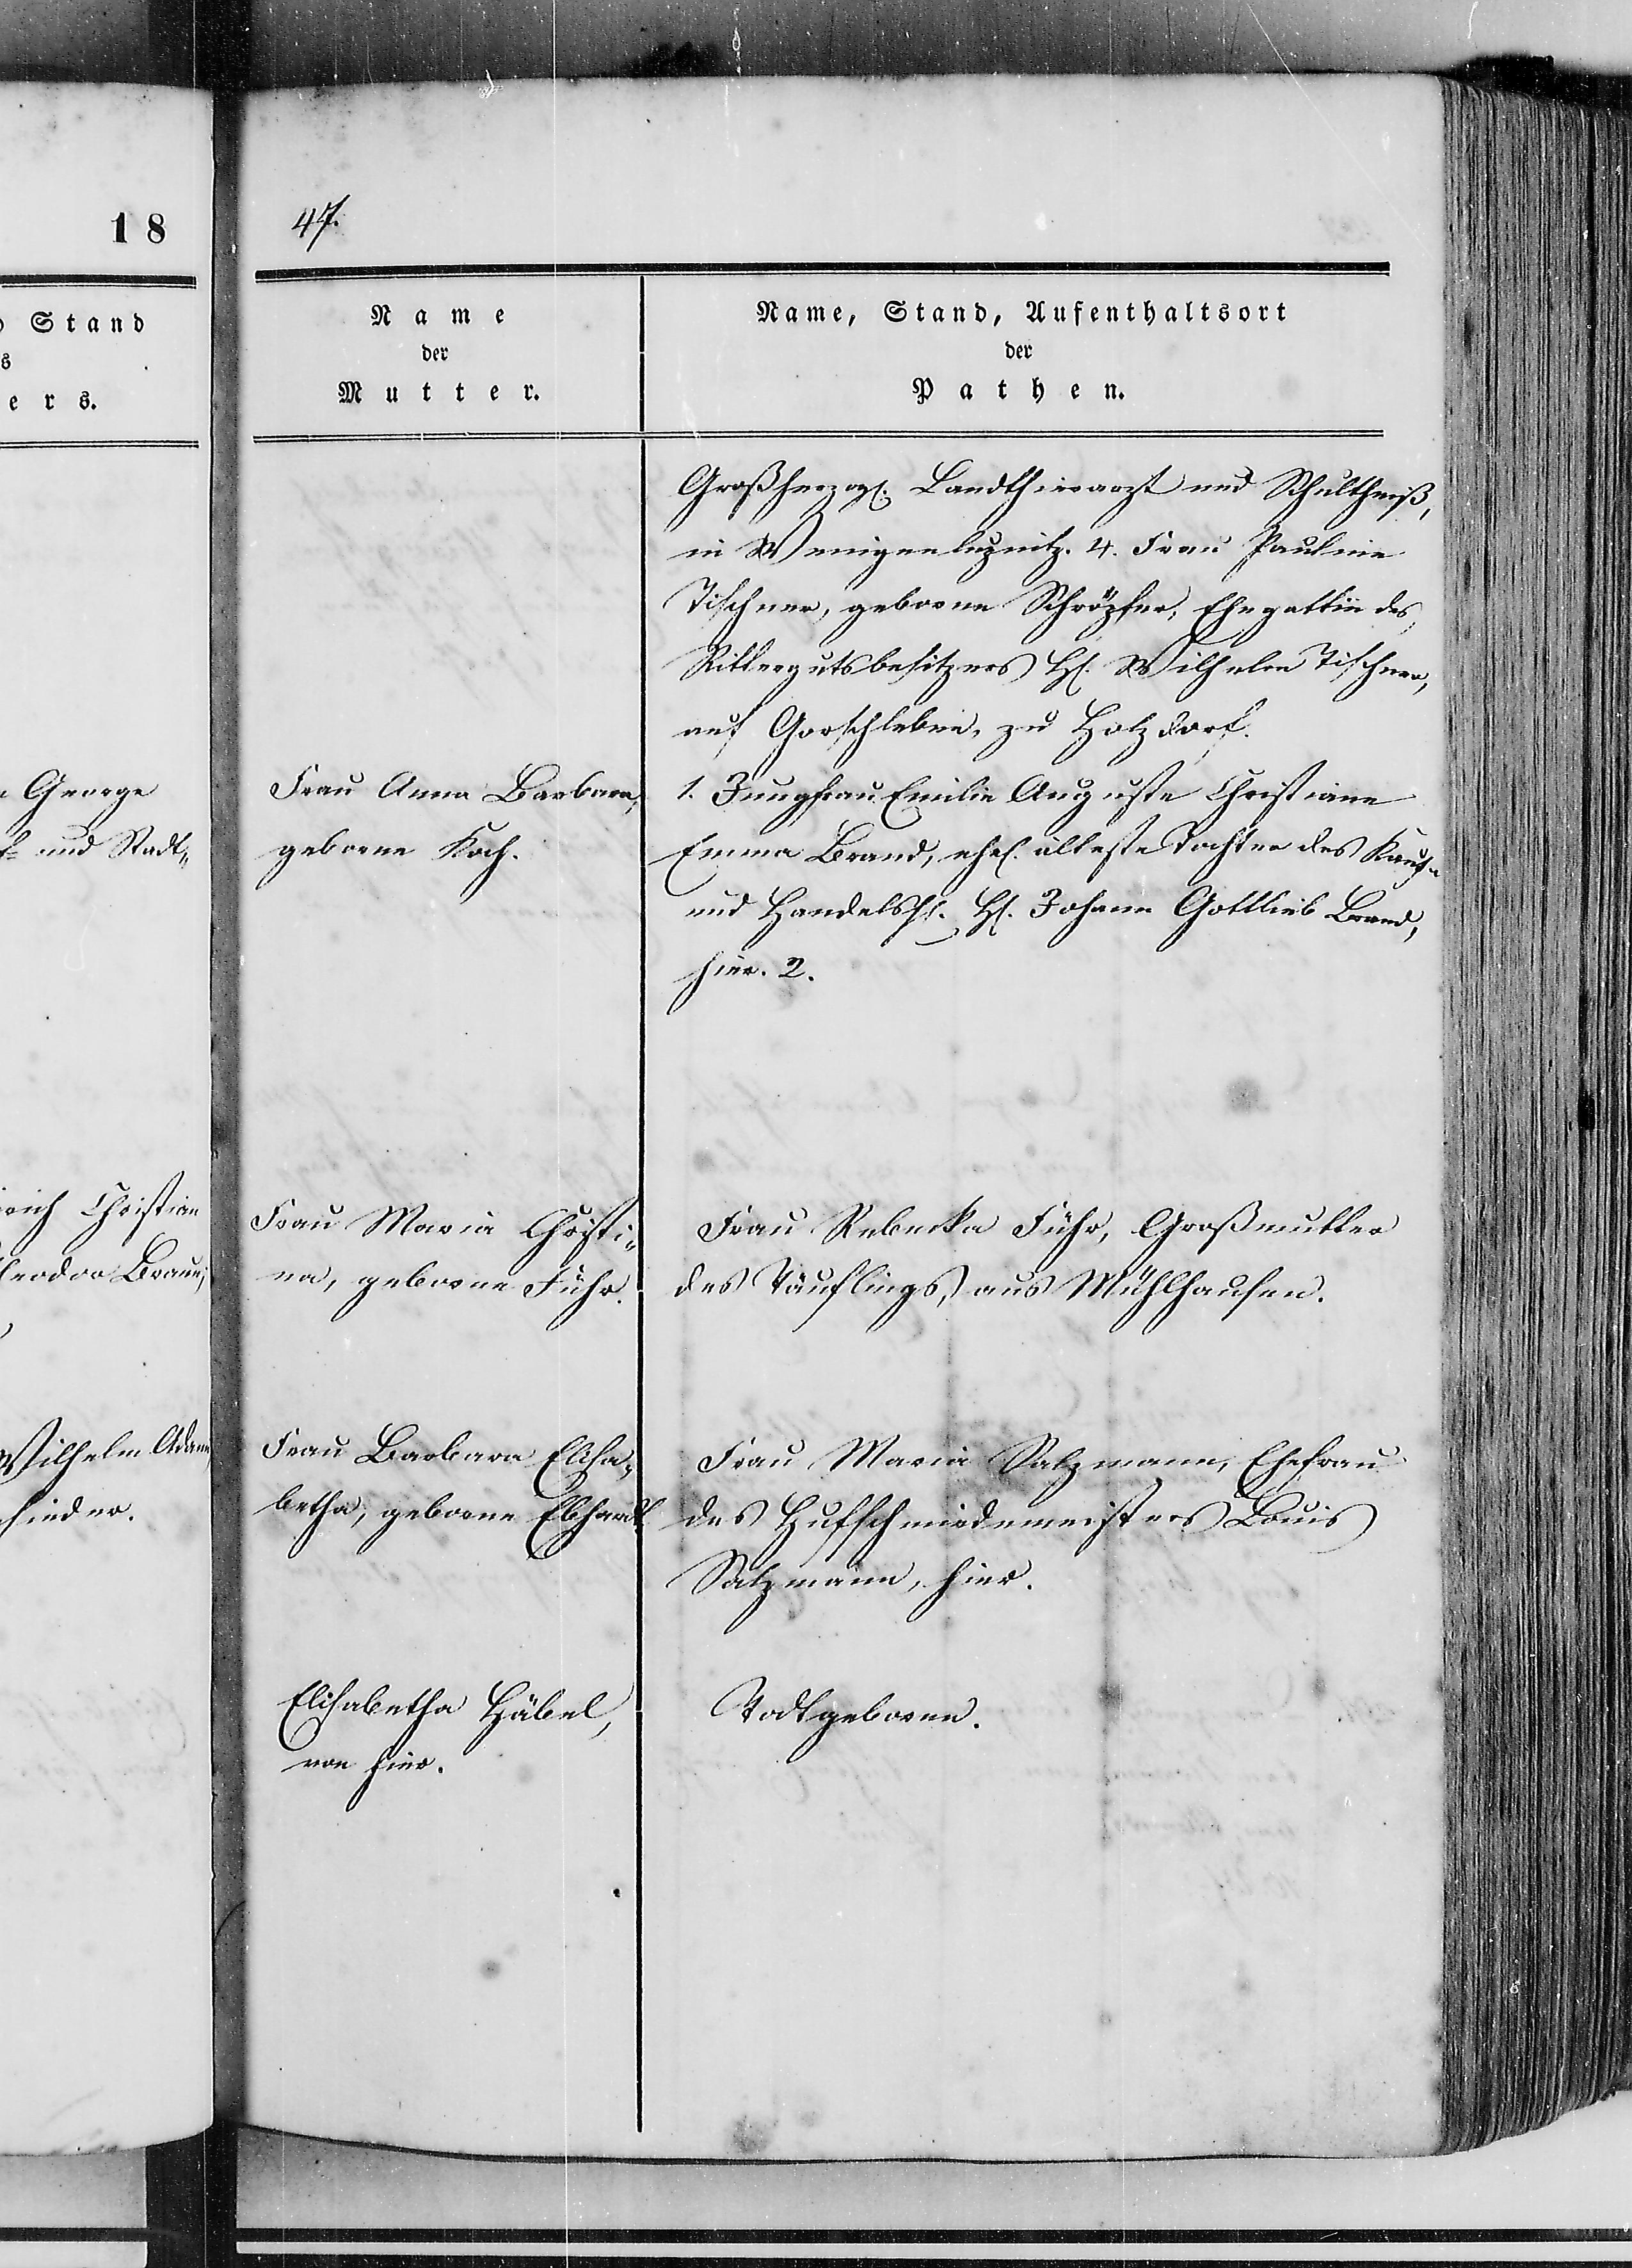 18
Stand
s
ers.
George
und Stadt„
Christian
Braun,
Wilhelm Adam
47.
Name
der
Mutter.
Name, Stand, Aufenthaltsort
der
Pathen.
Großherzogl. Landthierarzt und Schultheiß,
in Wenigenlupnitz. 4. Frau Pauline
Tischner, geborne Schröpfer, Ehegattin des
Rittergutsbesitzers H. Wilhelm Tischner,
auf Gorschleben, zu Holzdorf.
Frau Anna Barbara,
geborne Koch.
1. Jungfrau Emilie Auguste Christiane
Emma Brand, ehel. älteste Tochter des Kauf-
und Handelsh. H. Johann Gottlieb Brand,
hier. 2.
Frau Maria Christi„
na, geborne Führ.
Frau Rebecka Führ, Großmutter
des Täuflings, aus Mühlhausen.
Frau Barbara Elisa„
betha, geborne Ebhardt
Frau Maria Salzmann, Ehefrau
des Hufschmiedemeisters Louis
Salzmann, hier.
Elisabetha Häbel,
von hier.
Todtgeboren.